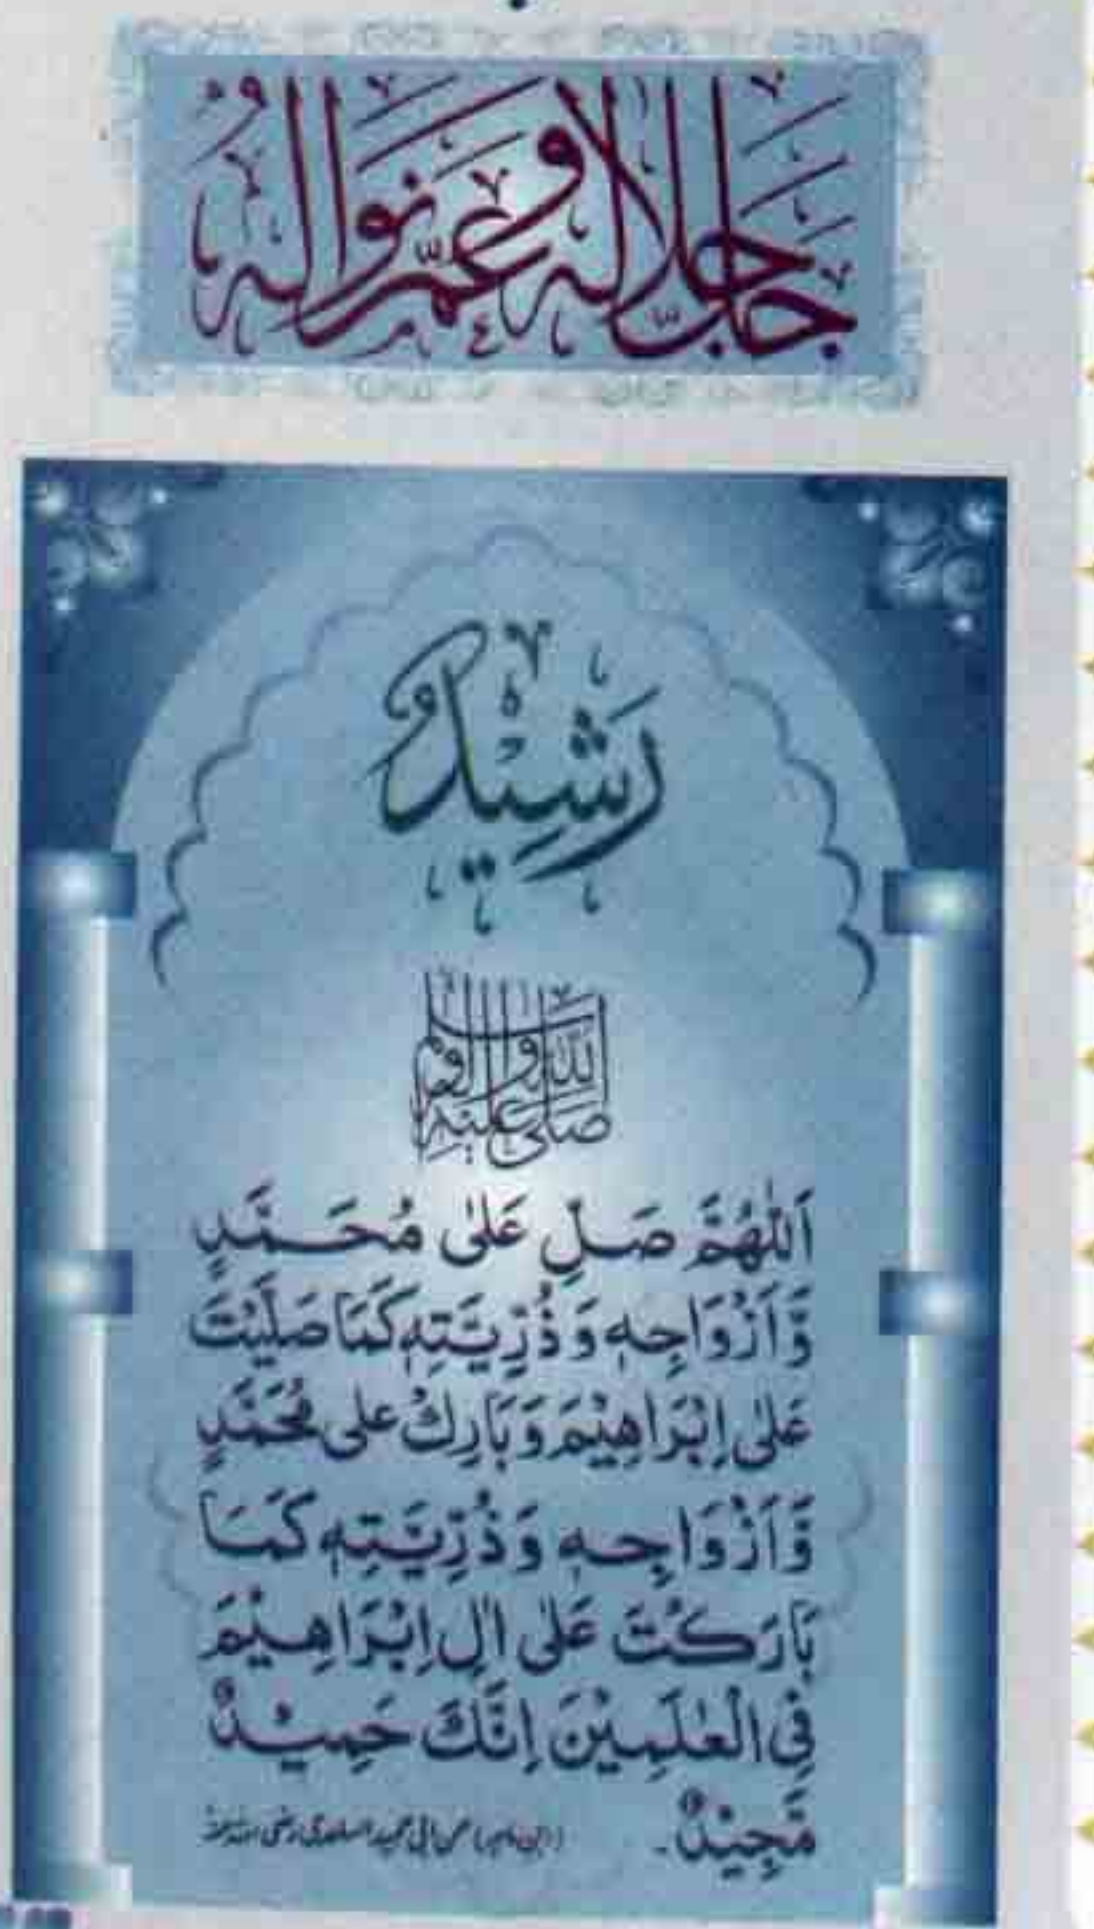 جَلَّ جَلَالُهٗ وَعَمَّ نَوَالُهٗ
رَشِيْدٌ
صَلَّى اللهُ عَلَيْهِ وَاٰلِهٖ وَسَلَّمَ
اَللّٰهُمَّ صَلِّ عَلٰى مُحَمَّدٍ
وَّاَزْوَاجِهٖ وَذُرِّيَّتِهٖ كَمَا صَلَّيْتَ
عَلٰى اِبْرَاهِيْمَ وَبَارِكْ علٰى مُحَمَّدٍ
وَّاَزْوَاجِهٖ وَذُرِّيَّتِهٖ كَمَا
بَارَكْتَ عَلٰى اٰلِ اِبْرَاهِيْمَ
فِي الْعٰلَمِيْنَ اِنَّكَ حَمِيْدٌ
مَّجِيْدٌ۔ (ابن ماجہ) عن ابی حمید الساعدی رضی اللہ عنہ